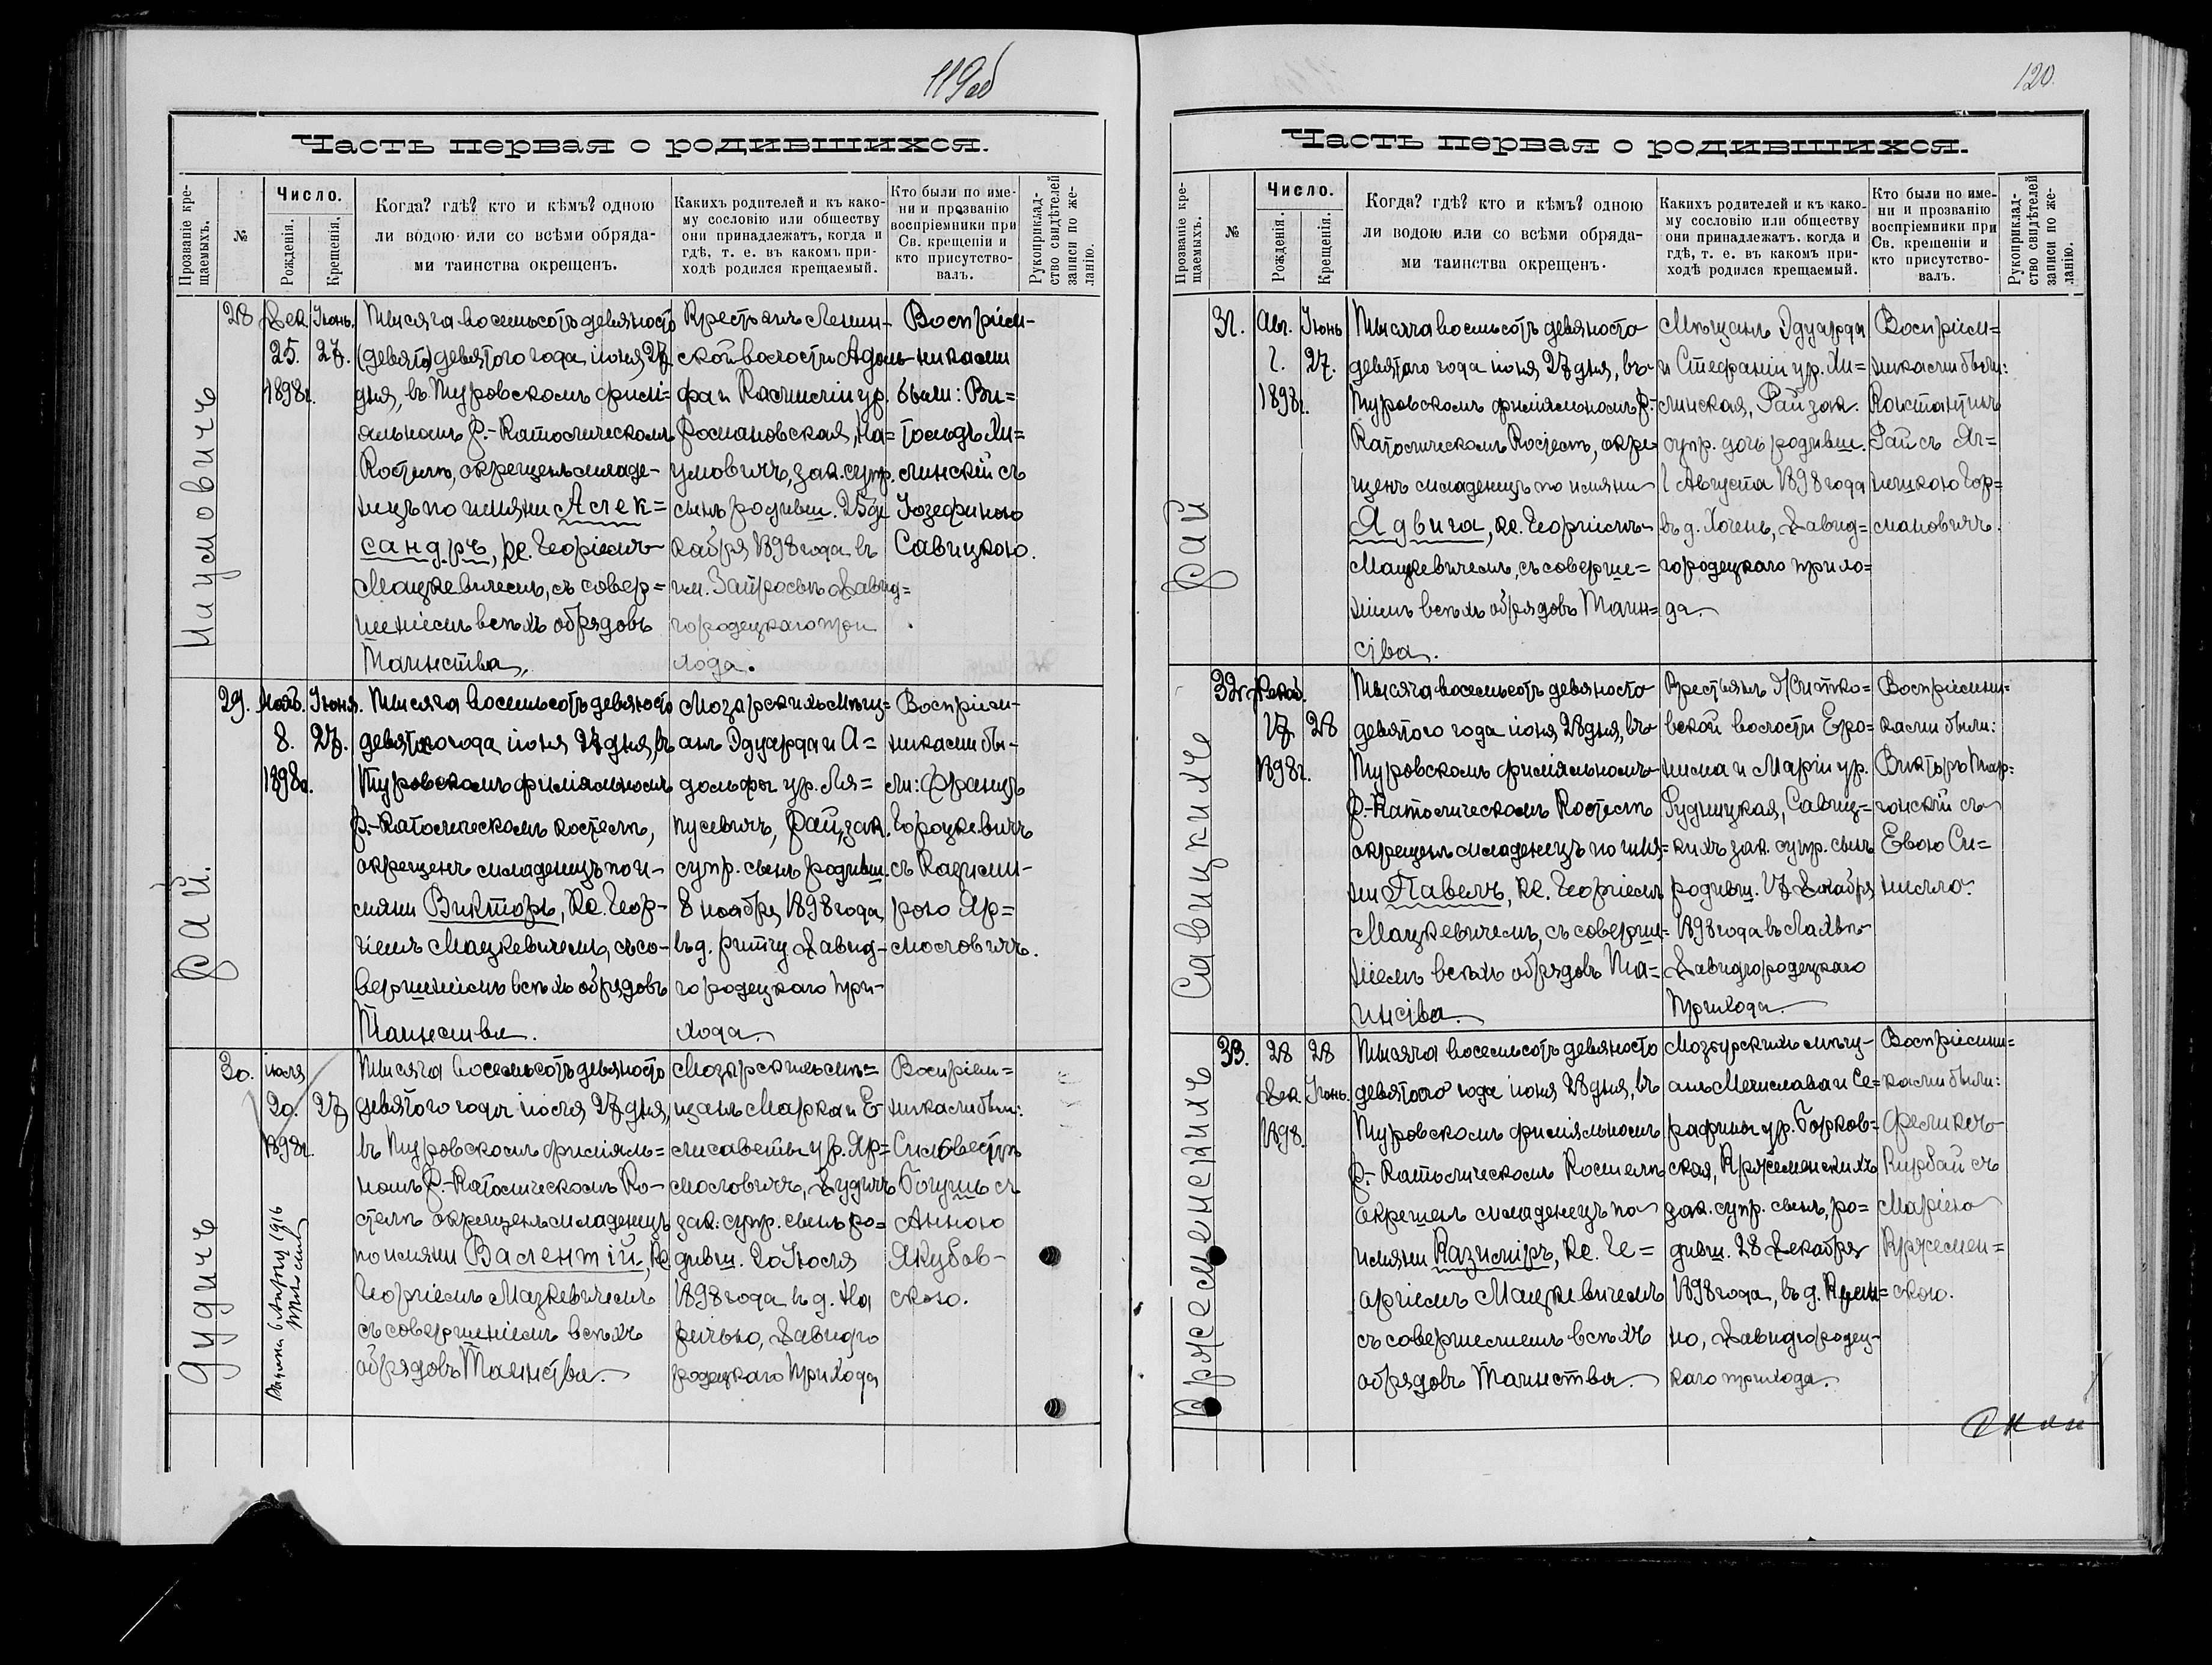 119об
Часть первая о родившихся.
Прозваніе кре-
щаемыхъ.
№
Число.
Рожденія.
Крещенія.
Когда? гдѣ? кто и кѣмъ? одною
ли водою или со всѣми обряда-
ми таинства окрещенъ.
Какихъ родителей и къ како-
му сословію или обществу
они принадлежатъ, когда и
гдѣ, т. е. въ какомъ при-
ходѣ родился крещаемый.
Кто были по име-
ни и прозванію
воспріемники при
Св. крещеніи и
кто присутство-
валъ.
Рукоприклад-
ство свидѣтелей
записи по же-
ланію.
28
Дек.
25.
1898г.
Іюнь.
27.
Тысяча восемьсотъ девяносто
(девято) девятого года іюня 27
дня, въ Туровскомъ филі-
альномъ Р.-Католическомъ
Костелѣ, окрещенъ младе-
нецъ по имяни Алек=
сандръ, Кс. Георгіемъ
Мацкевичемъ, съ совер=
шеніемъ всѣхъ обрядовъ
Таинства.
Крестьянъ Ленин-
ской волости Адоль-
фа и Камиліи ур.
Романовская, На=
умовичъ, зак. супр.
сынъ родивш. 25 де
кабря 1898 года въ
им. Запросье Давид=
городецкаго при
хода.
Воспріем-
никами
были: Ви=
тольдъ Хи=
линскій съ
Іозефиною
Савицкою.
29.
Нояб.
8.
1898г.
Іюня.
27.
Рай.
Тысяча восемьсотъ девяносто
девятого года іюня 27 дня, въ
Туровскомъ филіяльномъ
Р.-Католическомъ костелѣ,
окрещенъ младенецъ по и-
мяни Викторъ, Кс. Геор-
гіемъ Мацкевичемъ, съ со-
вершеніемъ всѣхъ обрядовъ
Таинства.
Мозырскихъ мѣщ=
анъ Эдуарда и А=
дольфы ур. Ля=
пусевичъ, Рай, зак.
супр. сынъ родивш.
8 ноября 1898 года
въ д. Давид-
городецкаго при-
хода.
Воспріем-
никами бы-
ли: Францъ
Городкевичъ
съ Казими-
рою Яр=
моловичъ.
30.
іюля
20.
1898г.
27
Дудичъ
Тысяча восемьсотъ девяносто
девятого года іюля 27 дня,
въ Туровскомъ филіяль=
номъ Р.-Католическомъ Ко-
стелѣ окрещенъ младенецъ
по имяни Валентій, Кс.
Георгіемъ Мацкевичемъ
съ совершеніемъ всѣхъ
обрядовъ Таинства.
Мозырскихъ мѣ=
щанъ Марка и Е
лисаветы ур. Яр=
моловичъ, Дудичъ
зак. супр. сынъ ро=
дивш. 20 Іюля
1898 года въ д. На
речью, Давидго
родецкаго прихода
Воспріем=
никами были:
Сильвестръ
Богушъ съ
Анною
Якубов-
скою.
120.
Часть первая о родившихся.
Прозваніе кре-
щаемыхъ.
№
Число.
Рожденія.
Крещенія.
Когда? гдѣ? кто и кѣмъ? одною
ли водою или со всѣми обряда-
ми таинства окрещенъ.
Какихъ родителей и къ како-
му сословію или обществу
они принадлежатъ. когда и
гдѣ, т. е. въ какомъ при-
ходѣ родился крещаемый.
Кто были по име-
ни и прозванію
воспріемники при
Св. крещеніи и
кто присутство-
валъ.
Рукоприклад-
ство свидѣтелей
записи по же-
ланію.
31.
Авг.
1.
1898г.
Іюнь
27.
Рай
Тысяча восемьсотъ девяносто
девятого года іюня 27 дня, въ
Туровскомъ филіяльномъ Р.-
Католическомъ Костелѣ, окре-
щенъ младенецъ по имяни
Ядвига, Кс. Георгіемъ
Мацкевичемъ, съ соверше=
ніемъ всѣхъ обрядовъ Таин=
ства.
Мѣщанъ Эдуарда
и Стефаніи ур. Хи=
линская, Рай зак.
супр. дочь родивш.
1 Августа 1898 года
въ д. Хочень, Давид=
городецкаго прихо=
да.
Воспріем=
никами были:
Константинъ
Рай съ Ян=
ниною Гор=
мановичъ.
32.
Декаб.
17
1898г.
28
Савицкихъ
Тысяча восемьсотъ девяносто
девятого года іюня 28 дня, въ
Туровскомъ филіяльномъ
Р.-Католическомъ Костелѣ
окрещенъ младенецъ по имя=
ни Павелъ, Кс. Георгіемъ
Мацкевичемъ, съ соверше=
ніемъ всѣхъ обрядовъ Та=
инства.
Крестьянъ Житко=
вской волости Еро=
нима и Маріи ур.
Рудницкая, Савиц=
кихъ зак. супр. сынъ
родивш. 17 Декабря
1898 года въ Лахвѣ
Давидгородецкаго
Прихода.
Воспріемни=
ками были:
Викторъ Тар=
гонскій съ
Евою Си=
нило.
33.
28
Дек.
1898.
28
Іюнь.
Кржеменскихъ
Тысяча восемьсотъ девяносто
девятого года іюня 28 дня, въ
Туровскомъ филіяльномъ
Р.-Католическомъ Костелѣ
окрещенъ младенецъ по
имяни Казиміръ, Кс. Ге=
оргіемъ Мацкевичемъ
съ совершеніемъ всѣхъ
обрядовъ Таинства.
Мозырскихъ мѣщ-
анъ Мечислава и Се=
рафины ур. Борков=
ская, Кржеменскихъ
зак. супр. сынъ, ро=
дивш. 28 Декабря
1898 года, въ д. Крем=
но, Давидгородец-
каго прихода.
Воспріемни=
ками были:
Феликсъ
Кирбай съ
Маріею
Кржемен=
скою.